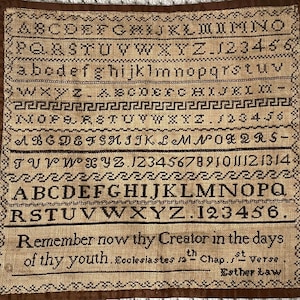 ABCDEFGHIJKLMNO
PQRSTUVWXYZ.123456
abcdefghijklmnopqrstuv
NOPQRSTUVWXYZ
TUVWXYZ.1234567891011121314
ABCDEFGHIJKLMNOPQ
RSTUVWXYZ.123456.
Remember now thy Creator in the days
of thy youth. Ecclesiastes 12th Chap. 1st Verse
Esther Law